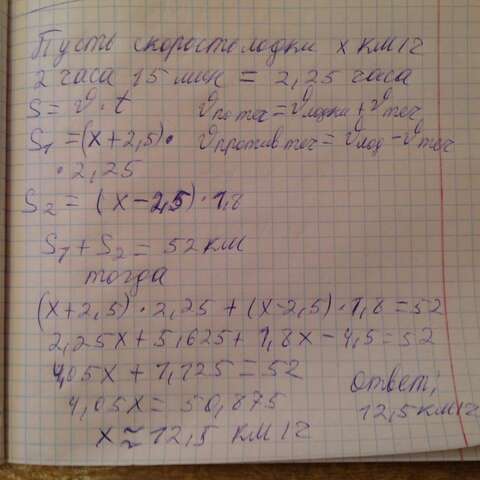 Пусть скорость лодки x км/ч
2 часа 15 мин = 2,25 часа
S = υ · t υпо теч = υлодки + υтеч
S1 = (x+2,5) · υпротив теч = υлод − υтеч
· 2,25
S2 = (x−2,5) · 1,8
S1 + S2 = 52 км
тогда
(x+2,5) · 2,25 + (x−2,5) · 1,8 = 52
2,25x + 5,625 + 1,8x − 4,5 = 52
4,05x + 1,125 = 52
4,05x = 50,875
x ≈ 12,5 км/ч
Ответ:
12,5 км/ч